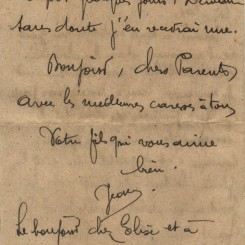 sans doute j'en recevrai une.
Bonjour, chers Parents
avec les meilleures caresses à tous
Votre fils qui vous aime
bien.
Jean
Le bonjour chez Elise et à